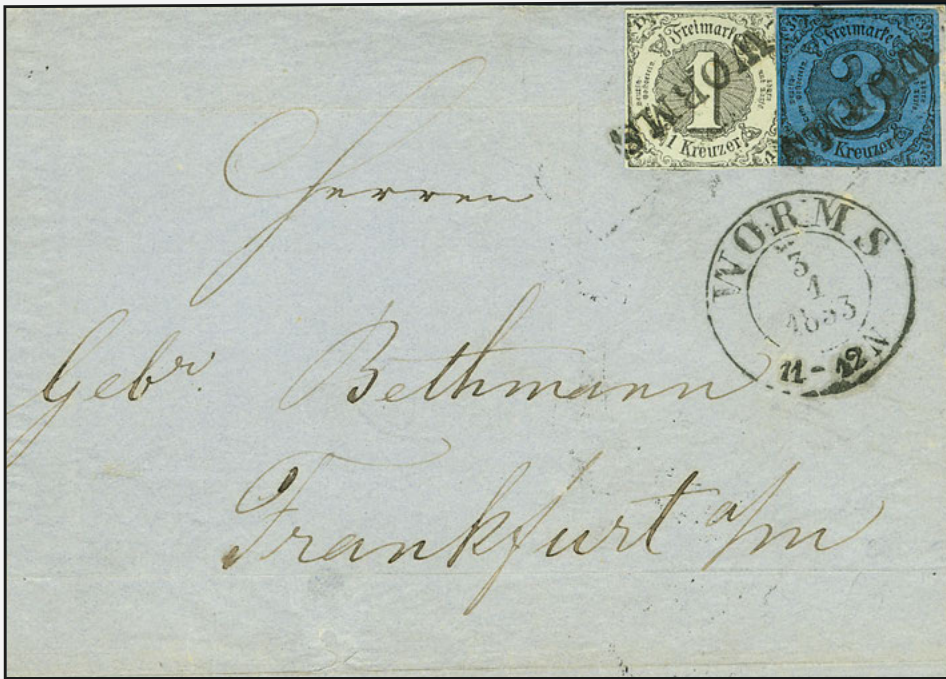 Freimarke
1
1 Kreuzer
WORMS
Freimarke
3
Kreuzer
WORMS
Herren
WORMS
3
1
1853
11-12 N
Gebr. Bethmann
Frankfurt a/m